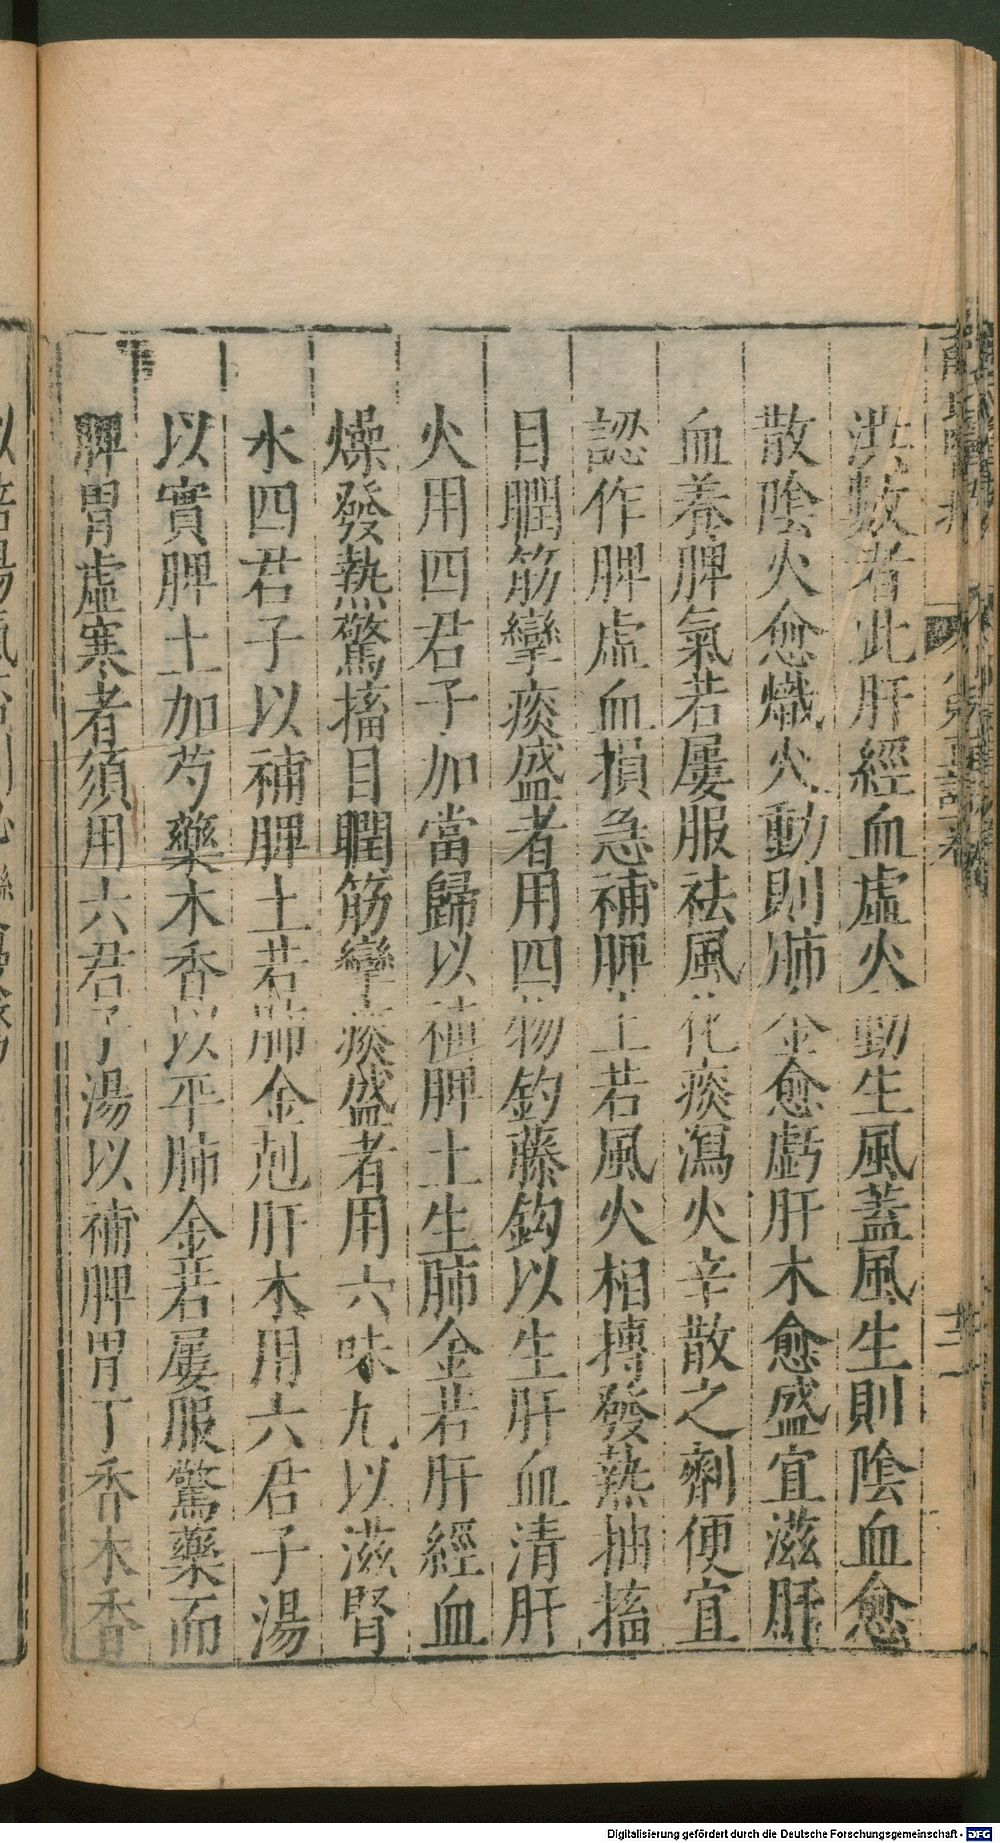 洪數者此肝經血虛火動生風蓋風生則陰血愈
散陰火愈熾火動則肺金愈虧肝木愈盛宜滋肝
血養脾氣若屢服祛風化痰瀉火辛散之劑便宜
認作脾虛血損急補脾土若風火相摶發熱抽搐
目瞤筋攣痰盛者用四物鈎藤鈎以生肝血清肝
火用四君子加當歸以補脾土生肺金若肝經血
燥發熱驚搐目瞤筋攣痰盛者用六味丸以滋腎
水四君子以補脾土若肺金尅肝木用六君子湯
以實脾土加芍藥木香以平肺金若屢服驚藥而
脾胃虛寒者須用六君子湯以補脾胃丁香木香
Digitalisierung gefördert durch die Deutsche Forschungsgemeinschaft - DFG